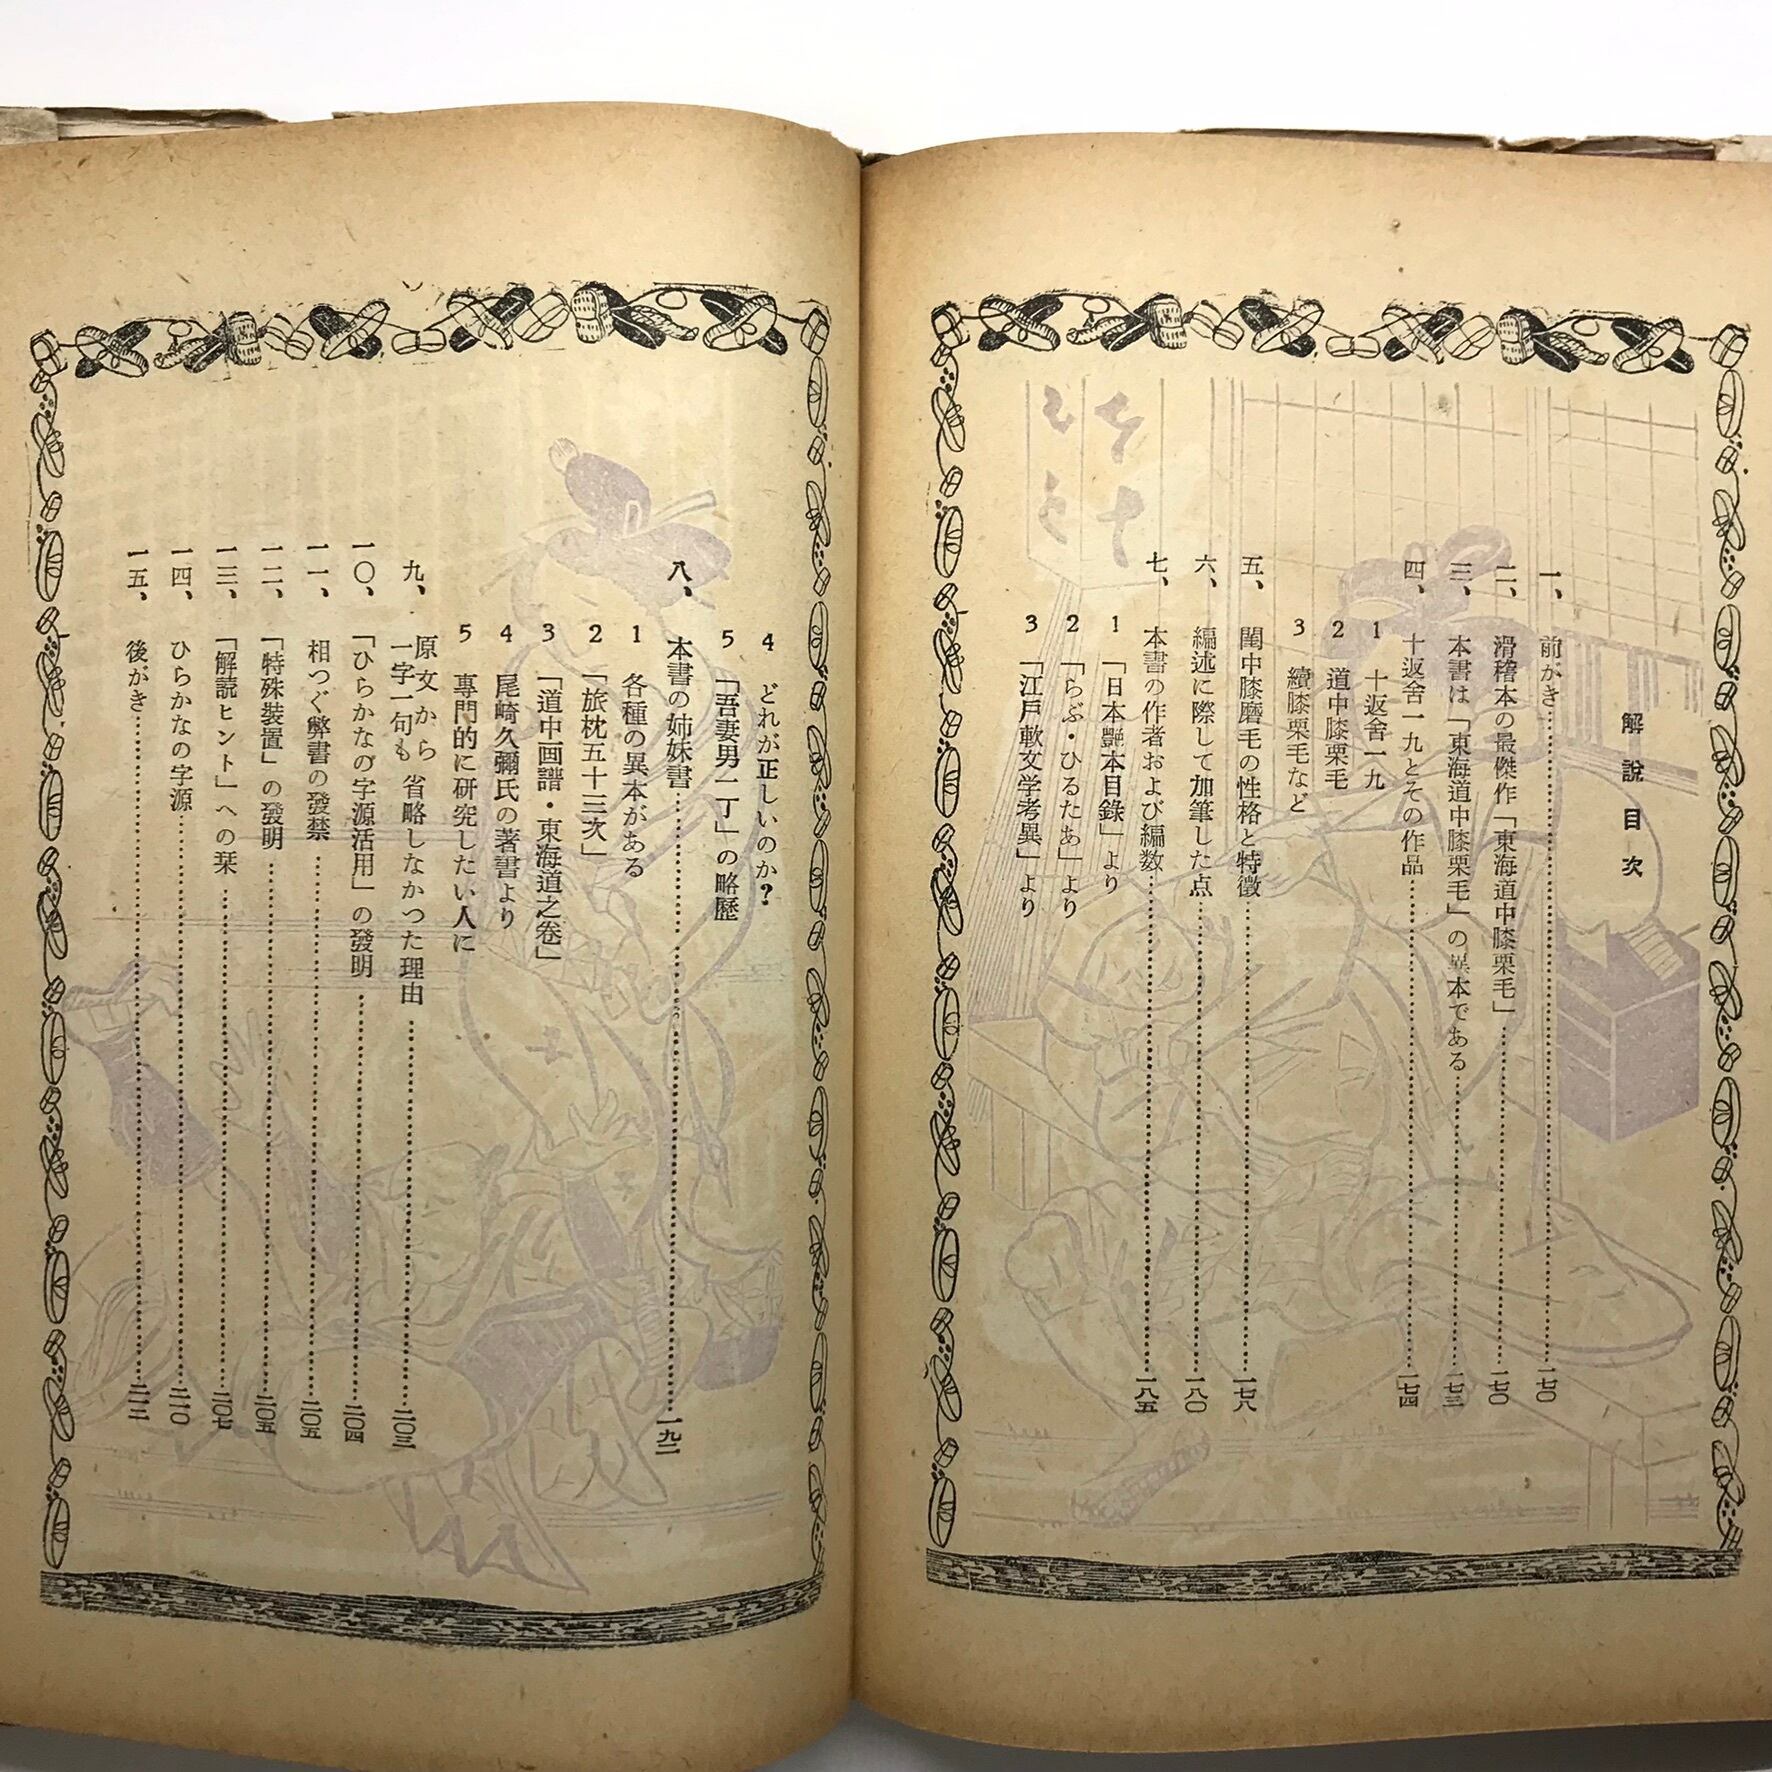 解説目次
一、前がき……一七〇
二、滑稽本の最傑作「東海道中膝栗毛」……一七〇
三、本書は「東海道中膝栗毛」の異本である……一七三
四、十返舎一九とその作品……一七四
1 十返舎一九
2 道中膝栗毛
3 續膝栗毛など
五、閨中膝磨毛の性格と特徴……一七八
六、編述に際して加筆した点……一八〇
七、本書の作者および編数……一八五
1 「日本艶本目錄」より
2 「らぶ・ひるたあ」より
3 「江戸軟文学考異」より
4 どれが正しいのか?
5 「吾妻男一丁」の略歴
八、本書の姉妹書……一九二
1 各種の異本がある
2 「旅枕五十三次」
3 「道中画譜・東海道之巻」
4 尾崎久彌氏の著書より
5 專門的に研究したい人に
九、原文から一字一句も省略しなかつた理由……二〇三
一〇、「ひらかなの字源活用」の發明……二〇四
一一、相つぐ弊書の發禁……二〇五
一二、「特殊裝置」の發明……二〇五
一三、「解説ヒント」への栞……二〇七
一四、ひらかなの字源……二一〇
一五、後がき……二一二